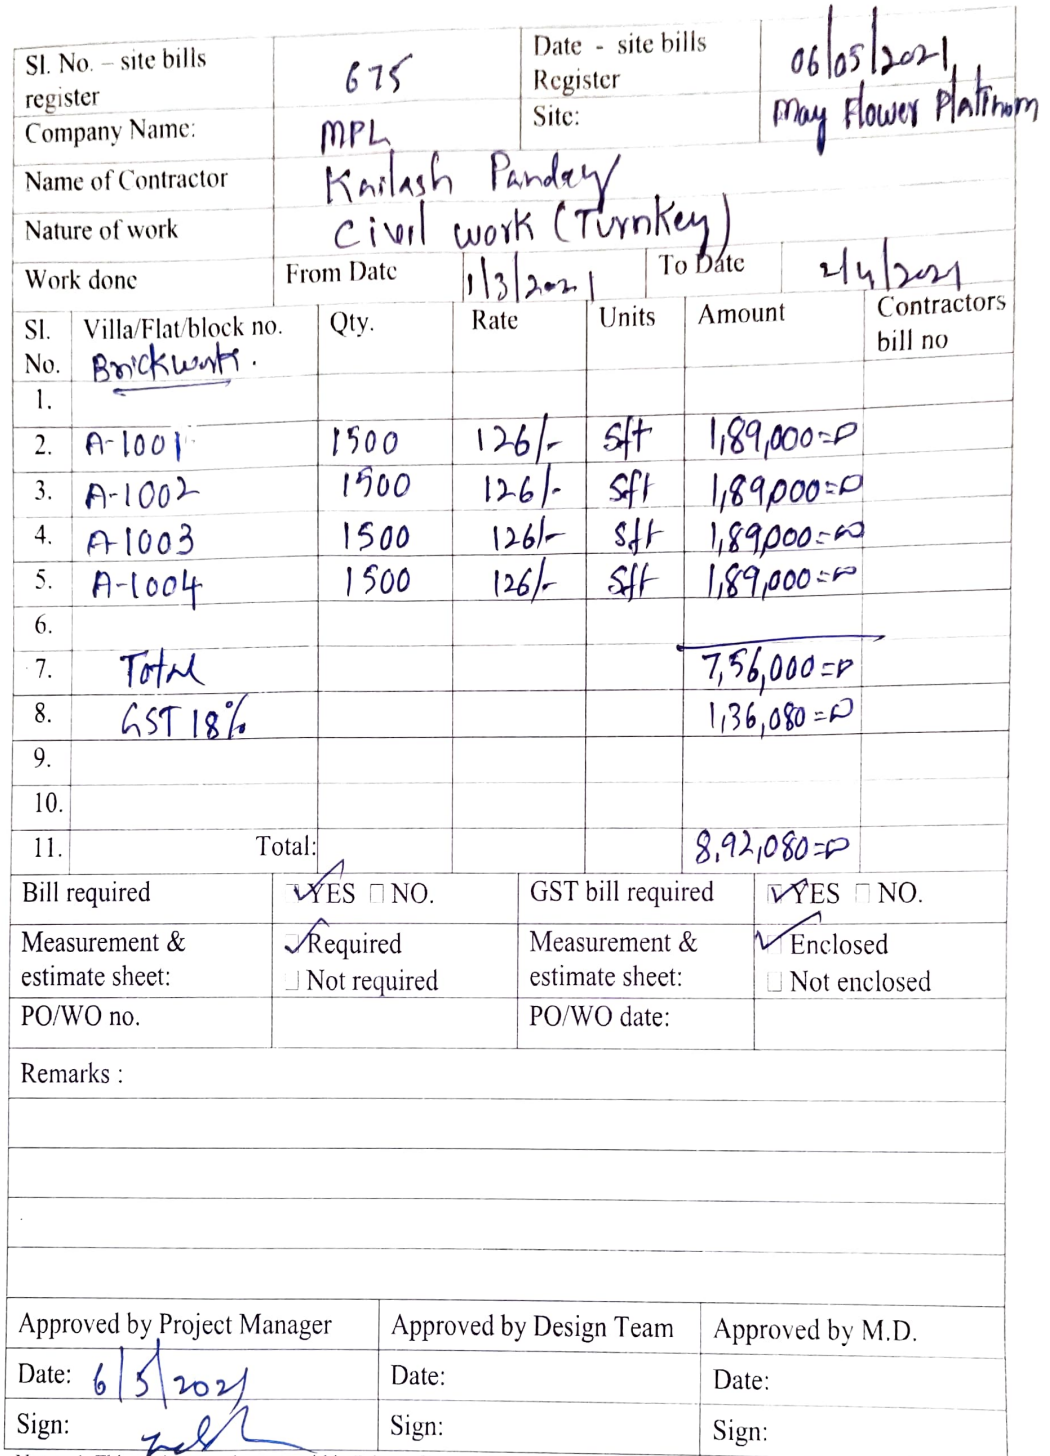 Sl. No. – site bills register 675 Date - site bills Register 06/05/2021
Company Name: MPL Site: May Flower Platinom
Name of Contractor Kailash Panday
Nature of work Civil work (Turnkey)
Work done From Date 1/3/2021 To Date 2/4/2021
Sl. No. Villa/Flat/block no. Qty. Rate Units Amount Contractors bill no
Brickwork.
1.
2. A-1001 1500 126/- Sft 1,89,000=00
3. A-1002 1500 126/- Sft 1,89,000=00
4. A-1003 1500 126/- Sft 1,89,000=00
5. A-1004 1500 126/- Sft 1,89,000=00
6.
7. Total 7,56,000=00
8. GST 18% 1,36,080=00
9.
10.
11. Total: 8,92,080=00
Bill required YES NO. GST bill required YES NO.
Measurement & estimate sheet: Required Not required Measurement & estimate sheet: Enclosed Not enclosed
PO/WO no. PO/WO date:
Remarks :
Approved by Project Manager Approved by Design Team Approved by M.D.
Date: 6/5/2021 Date: Date:
Sign: Sign: Sign: